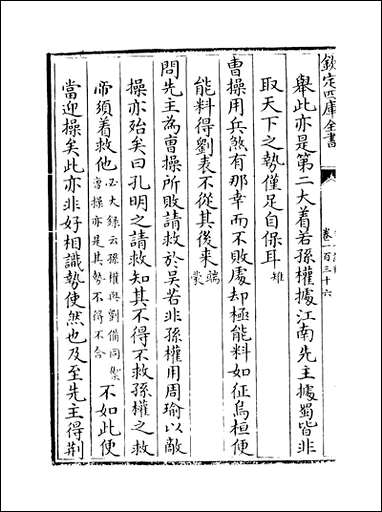 欽定四庫全書
卷一百三十六
舉此亦是第二大着若孫權據江南先主據蜀皆非
取天下之勢僅足自保耳雉
曹操用兵煞有那幸而不敗處却極能料如征烏桓便
能料得劉表不從其後来端蒙
問先主為曹操所敗請救於吳若非孫權用周瑜以敵
操亦殆矣曰孔明之請救知其不得不救孫權之救
帝須着救他必大録云孫權與劉備同禦曹操亦是其勢不得不合不如此使
當迎操矣此亦非好相識勢使然也及至先主得荆